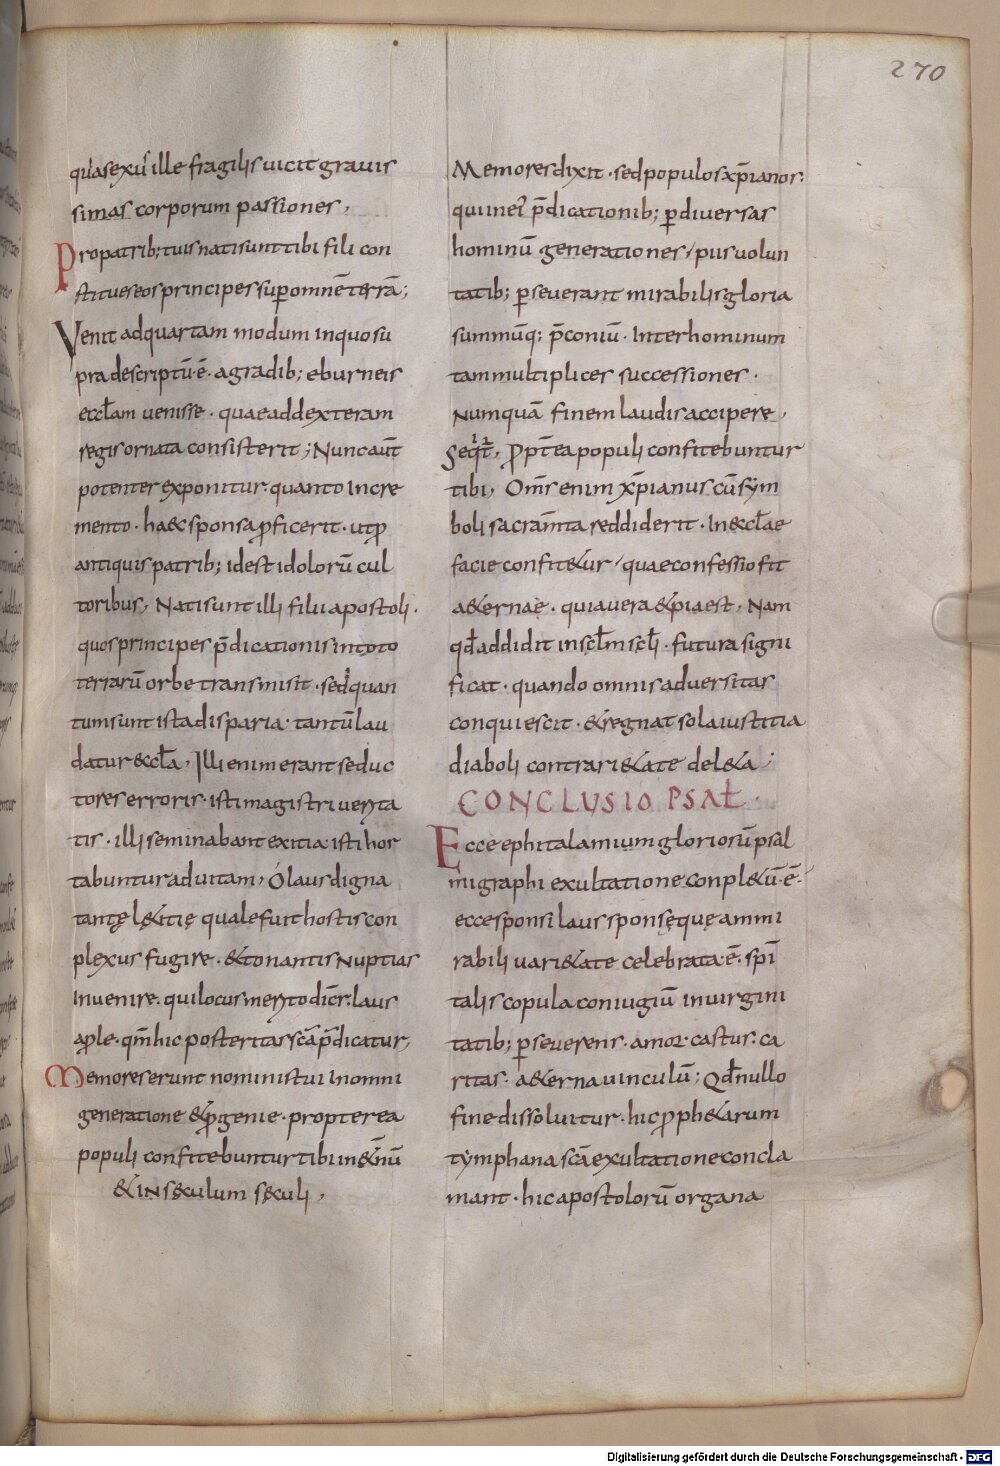 270
quasexuſ ille fragilis uicit grauis
simas corporum passiones,
Propatrib; tuis nati sunt tibi filii con
stitues eos principes sup omnē terrā;
Venit ad quartam modum in quo su
pra descriptū ē. a gradib; eburneis
eccłam uenisse. quae ad dexteram
regis ornata consisterit; Nunc aūt
potenter exponitur. quanto incre
mento. haec sponsa ꝓficerit. ut ꝓ
antiquis patrib; id est idolorū cul
toribus, Nati sunt illi filii apostoli.
quos principes p̄dicationis in toto
terrarū orbe transmisit. sed quan
tum sunt ista disparia. tantū lau
datur &ccła, Illi enim erant seduc
tores erroris. isti magistri uerita
tis. illi seminabant exitia. isti hor
tabuntur ad uitam, O laus digna
tantę l&itię quale fuit hostis con
plexus fugire. & tonantis Nuptias
inuenire. qui locus merito dicr̄. laus
aple. qm̄ hic posteritas sc̄a p̄dicatur,
Memores erunt nominis tui in omni
generatione & ꝓgenie. propterea
populi confitebuntur tibi in &nū
& in seculum seculi,
Memores dixit. sed populos xp̄ianos.
qui in ei p̄dicationib; ꝑ diuersas
hominū generationes / piis uolun
tatib; ꝑseuerant mirabilis gloria
summūq; p̄coniū. Inter hominum
tam multiplices successiones.
Numquā finem laudis accipere,
Seqt̄, Propt̄ea populi confitebuntur
tibi, Om̄s enim xp̄ianus cū sym
boli sacram̄ta reddiderit. In &cłae
facie confit&ur / quae confessio fit
a&ernae. quia uera & pia est, Nam
qđ addidit in sc̄łm sc̄łi. futura signi
ficat. quando omnis aduersitas
conquiescit. & regnat sola iustitia
diaboli contrari&ate del&a;
CONCLUSIO PSAŁ.
Ecce ephitalamium gloriosū psal
migraphi exultatione conpl&ū ē.
ecce sponsi laus sponsęque ammi
rabili uari&ate celebrata ē. spī
talis copula coniugiū in uirgini
tatib; ꝑseuerens. amor castus. ca
ritas. a&erna uinculū; Qđ nullo
fine dissoluitur. hic ꝓph&arum
tymphana sc̄a exultatione concla
mant. hic apostolorū organa
Digitalisierung gefördert durch die Deutsche Forschungsgemeinschaft - DFG